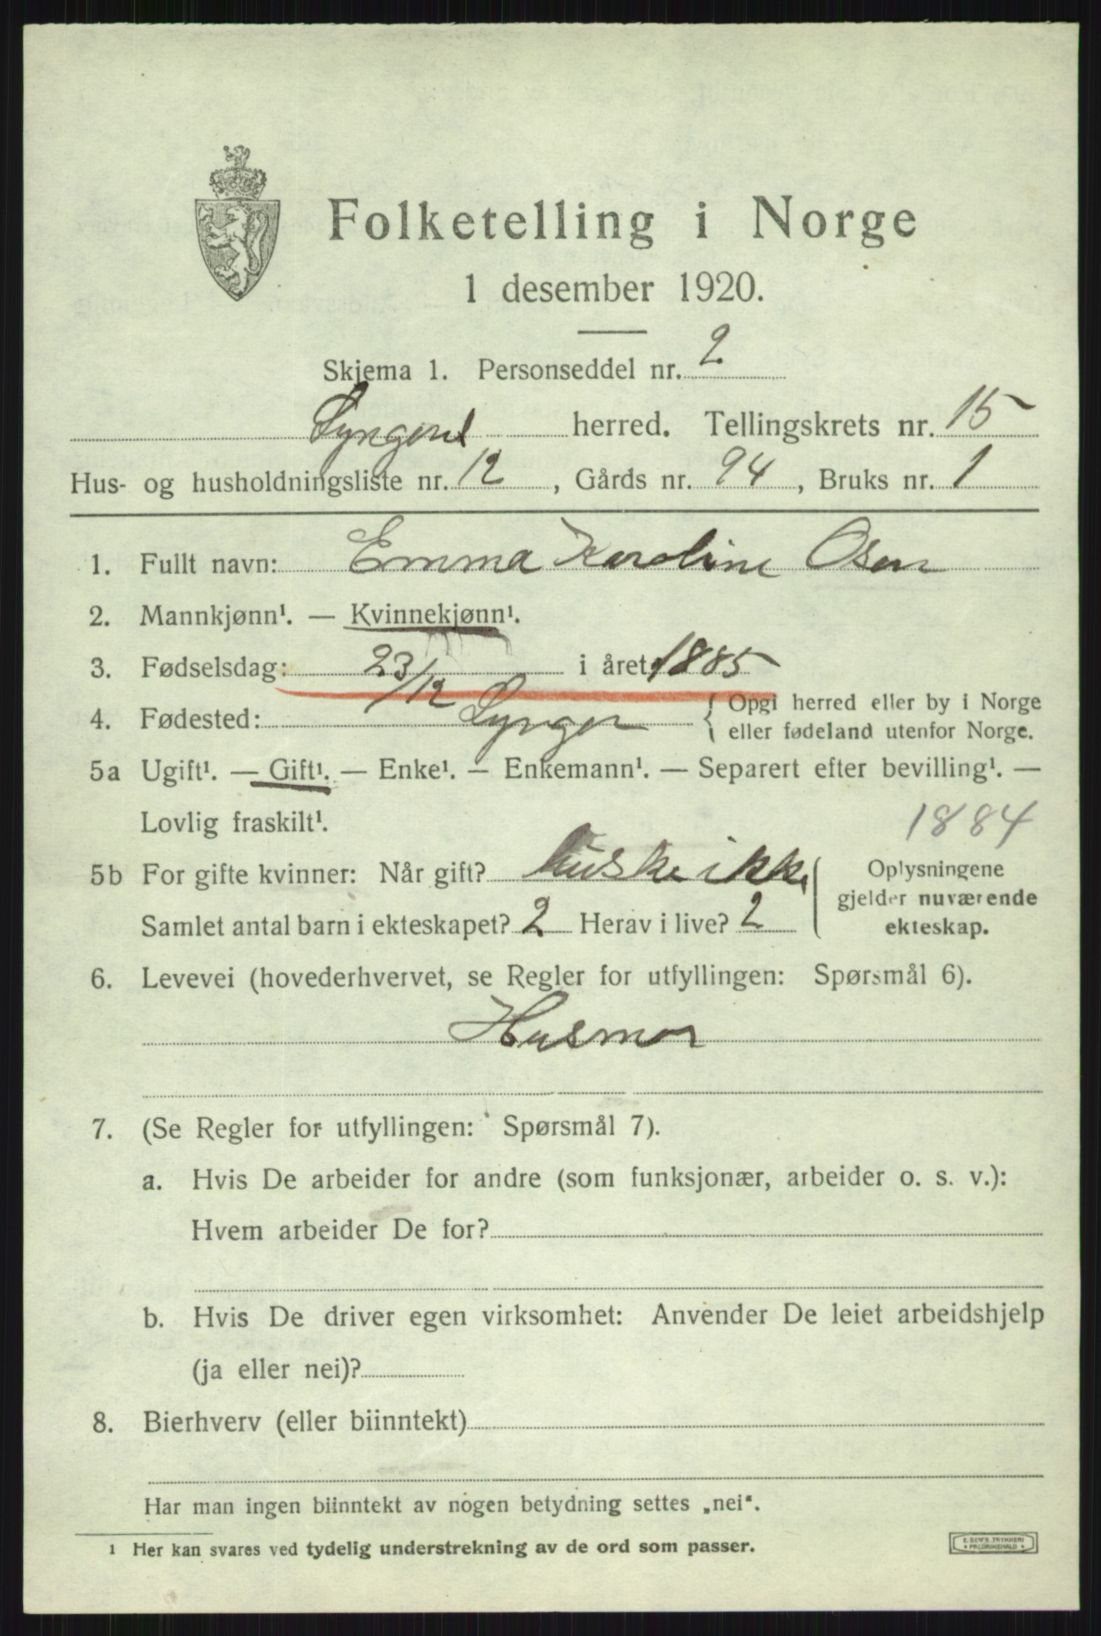 Folketelling i Norge
1 desember 1920.
Skjema 1. Personseddel nr. 2
Lyngen herred. Tellingskrets nr. 15
Hus- og husholdningsliste nr. 12, Gårds nr. 94, Bruks nr. 1
1. Fullt navn: Emma Karoline Olsen
2. Mannkjønn¹. — Kvinnekjønn¹.
3. Fødselsdag: 23/12 i året 1885
4. Fødested: Lyngen { Opgi herred eller by i Norge
eller fødeland utenfor Norge.
5a Ugift¹. — Gift¹. — Enke¹. — Enkemann¹. — Separert efter bevilling¹. —
Lovlig fraskilt¹.
1884
5b For gifte kvinner: Når gift? huske ikke
Samlet antal barn i ekteskapet? 2 Herav i live? 2
( Oplysningene
gjelder nuværende
ekteskap.
6. Levevei (hovederhvervet, se Regler for utfyllingen: Spørsmål 6).
Husmor
7. (Se Regler for utfyllingen: Spørsmål 7).
a. Hvis De arbeider for andre (som funksjonær, arbeider o. s. v.):
Hvem arbeider De for?
b. Hvis De driver egen virksomhet: Anvender De leiet arbeidshjelp
(ja eller nei)?
8. Bierhverv (eller biinntekt)
Har man ingen biinntekt av nogen betydning settes „nei".
¹ Her kan svares ved tydelig understrekning av de ord som passer.